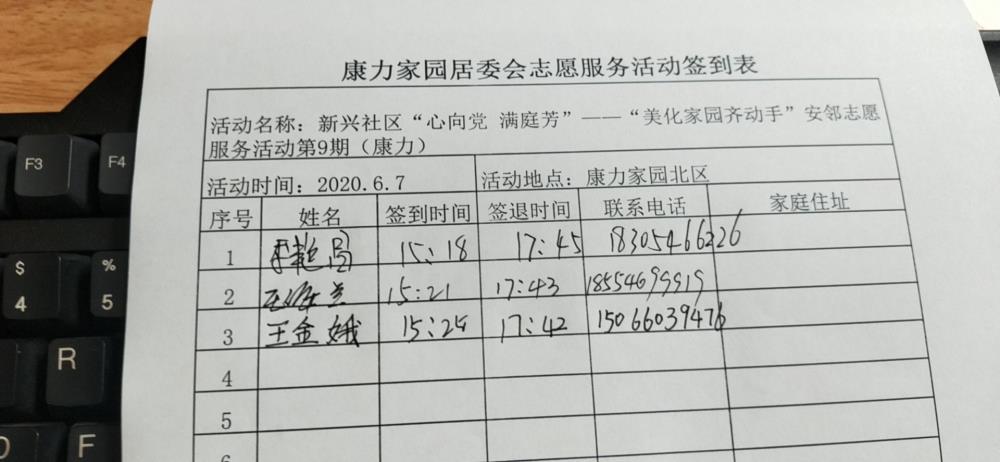 康力家园居委会志愿服务活动签到表
活动名称：新兴社区“心向党 满庭芳”——“美化家园齐动手”安邻志愿
服务活动第9期（康力）
活动时间：2020.6.7 活动地点：康力家园北区
序号 姓名 签到时间 签退时间 联系电话 家庭住址
1 15:18 17:45 18305466226
2 15:21 17:43 18554699919
3 王金娥 15:25 17:42 15066039476
4
5
6
F3 F4
$ %
4 5
R
F